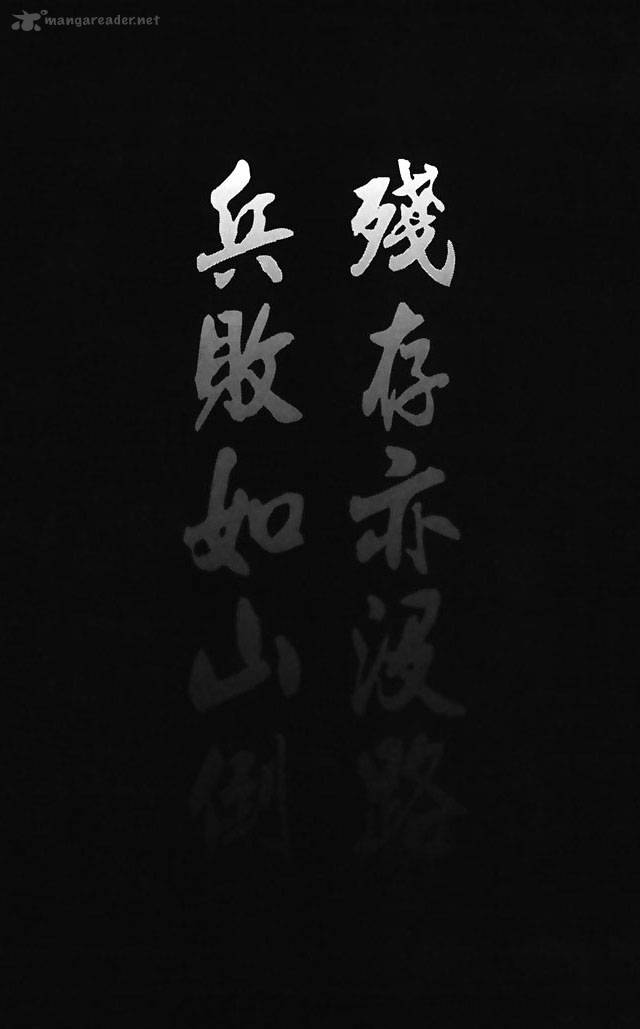 mangareader.net
殘存亦沒路
兵敗如山倒